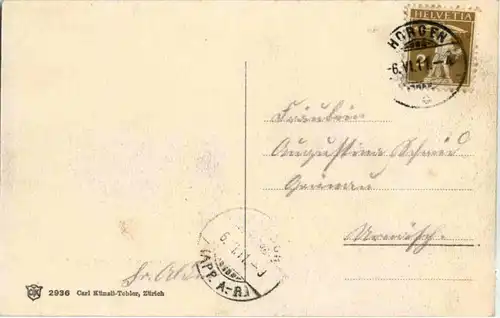 HELVETIA
HORGEN
-6.VI.11.-
Fräulein
Augustina Schmid
Urnäsch
6.VI.11.-
(APP. A.-R.)
2936 Carl Künzli-Tobler, Zürich